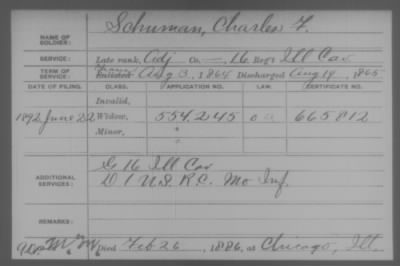 NAME OF SOLDIER: Schuman, Charles F.
SERVICE: Late rank, Adj Co. —, 16 Reg't Ill Cav
TERM OF SERVICE: Enlisted Aug 3, 1864 Discharged Aug 19, 1865
DATE OF FILING. CLASS. APPLICATION NO. LAW. CERTIFICATE NO.
Invalid,
1892 June 22 Widow, 554245 665812
Minor,
ADDITIONAL SERVICES: G 16 Ill Cav
D 1 U.S. R.C. Mo Inf.
REMARKS:
Died Feb 26, 1886, at Chicago, Ill.